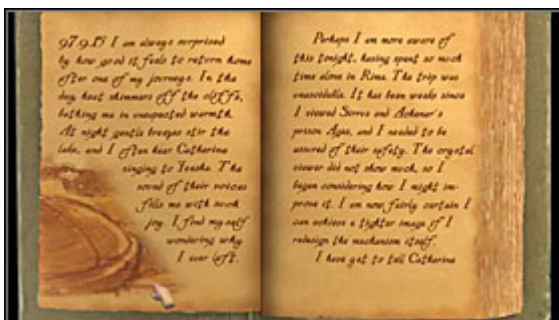 97.9.15 I am always surprised
by how good it feels to return home
after one of my journeys. In the
day, heat shimmers off the cliffs,
bathing me in unexpected warmth.
At night gentle breezes stir the
lake, and I often hear Catherine
singing to Yeesha. The
sound of their voices
fills me with such
joy. I find myself
wondering why
I ever left.
Perhaps I am more aware of
this tonight, having spent so much
time alone in Rime. The trip was
unavoidable. It has been weeks since
I viewed Sirrus and Achenar's
prison Ages, and I needed to be
assured of their safety. The crystal
viewer did not show much, so I
began considering how I might im-
prove it. I am now fairly certain I
can achieve a tighter image if I
redesign the mechanism itself.
I have yet to tell Catherine